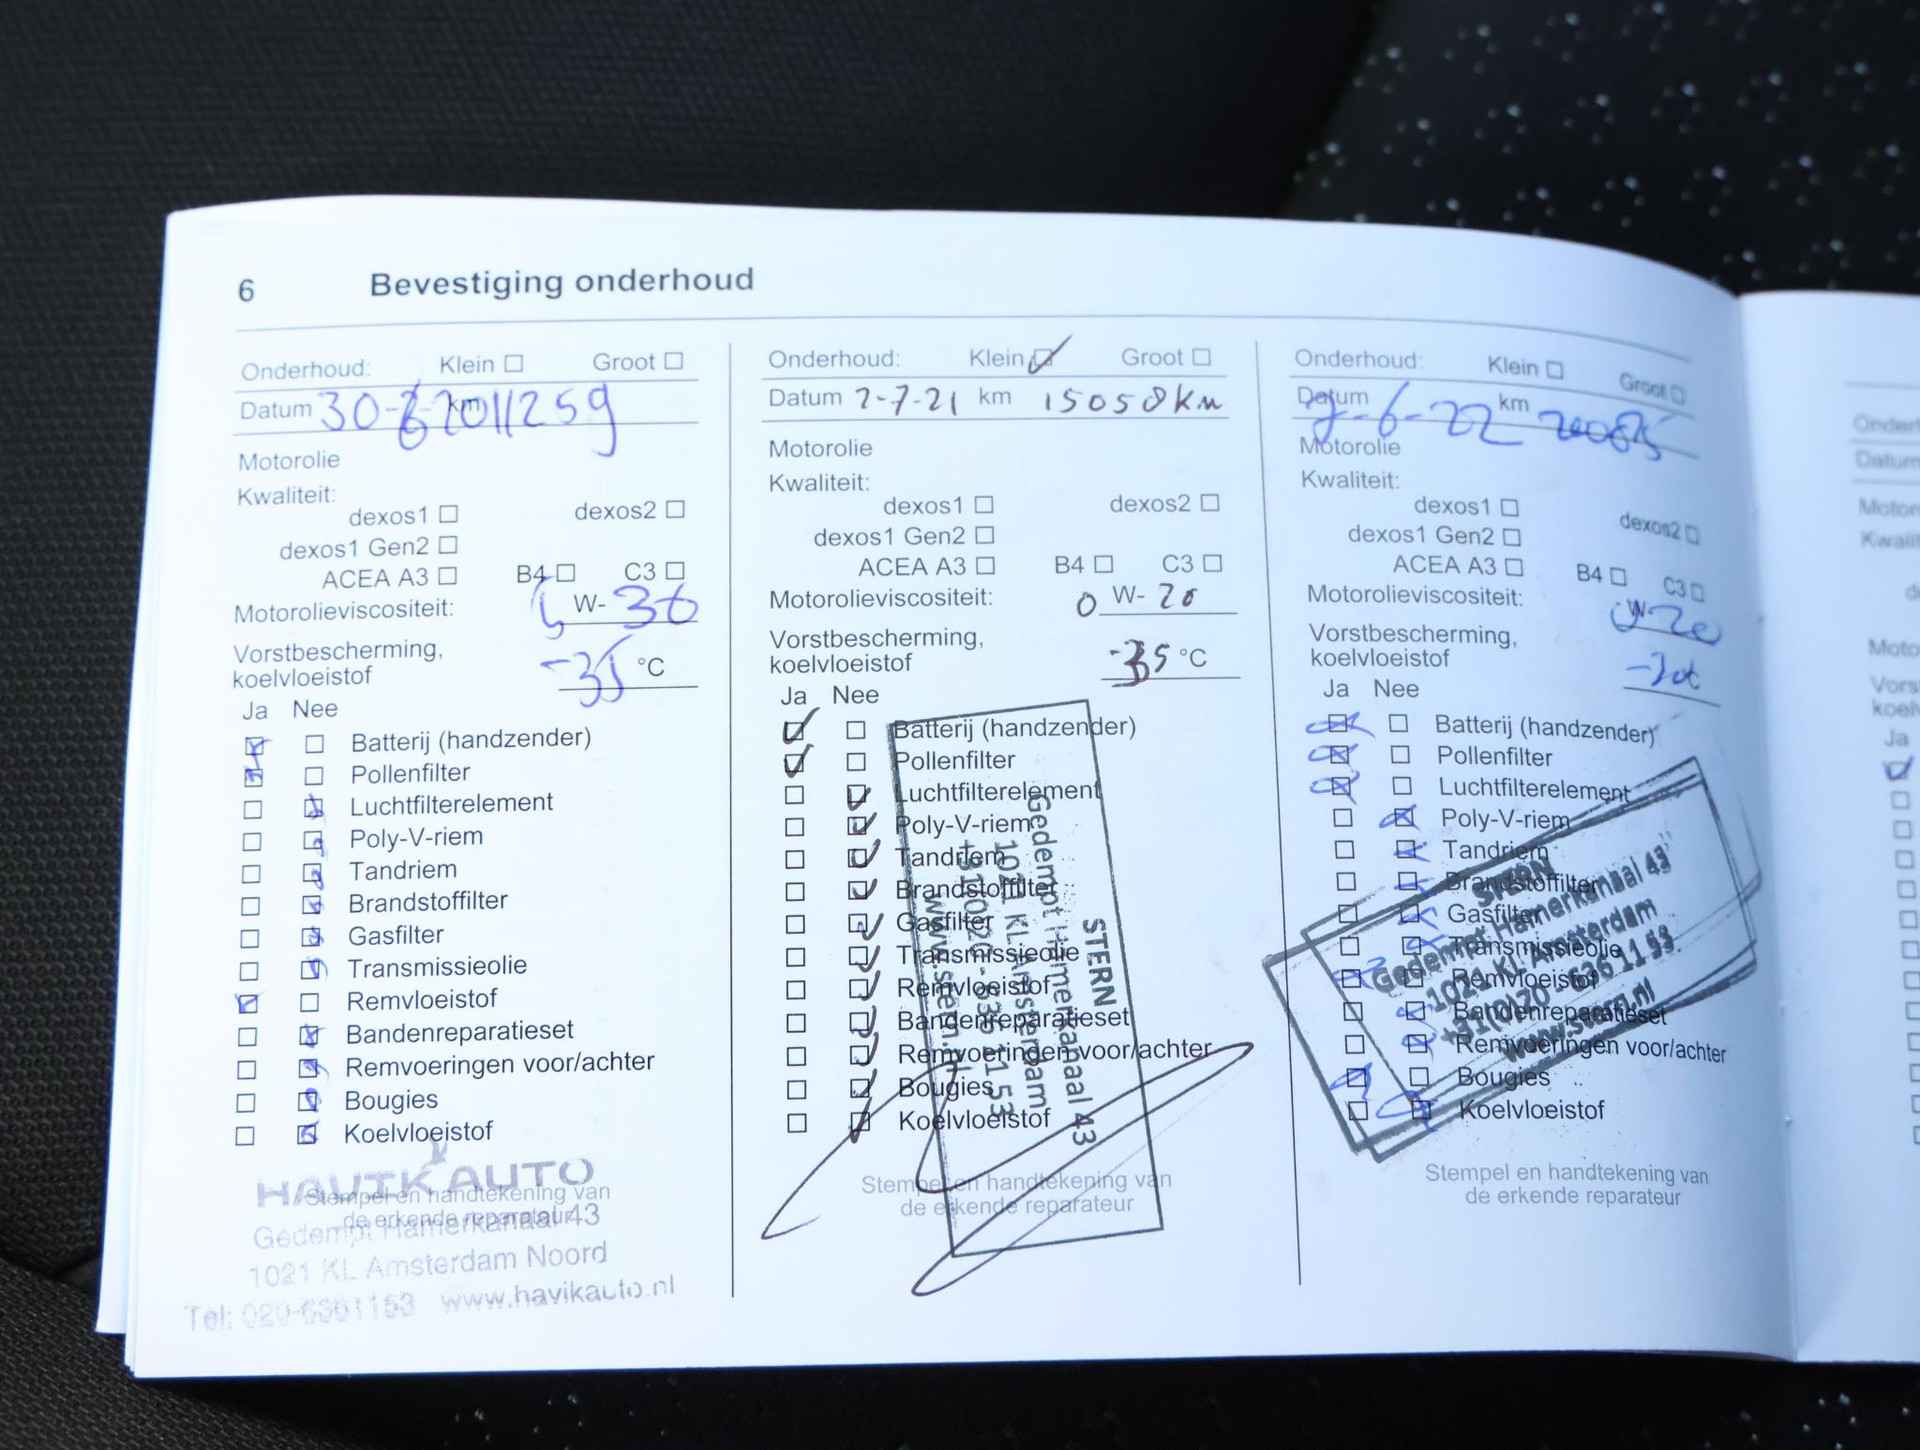 6 Bevestiging onderhoud
Onderhoud: Klein Groot
Datum km 11259
Motorolie
Kwaliteit:
dexos1 dexos2
dexos1 Gen2
ACEA A3 B4 C3
Motorolieviscositeit: W-30
Vorstbescherming,
koelvloeistof -35 °C
Ja Nee
Batterij (handzender)
Pollenfilter
Luchtfilterelement
Poly-V-riem
Tandriem
Brandstoffilter
Gasfilter
Transmissieolie
Remvloeistof
Bandenreparatieset
Remvoeringen voor/achter
Bougies
Koelvloeistof
Stempel en handtekening van
de erkende reparateur
HAVIK AUTO
Gedempt Hamerkanaal 43
1021 KL Amsterdam Noord
Tel: 020-6361153 www.havikauto.nl
Onderhoud: Klein Groot
Datum 2-7-21 km 15058 km
Motorolie
Kwaliteit:
dexos1 dexos2
dexos1 Gen2
ACEA A3 B4 C3
Motorolieviscositeit: 0 W- 20
Vorstbescherming,
koelvloeistof -35 °C
Ja Nee
Batterij (handzender)
Pollenfilter
Luchtfilterelement
Poly-V-riem
Tandriem
Brandstoffilter
Gasfilter
Transmissieolie
Remvloeistof
Bandenreparatieset
Remvoeringen voor/achter
Bougies
Koelvloeistof
STERN
Gedempt Hamerkanaal 43
1021 KL Amsterdam
www.stern.nl
Stempel en handtekening van
de erkende reparateur
Onderhoud: Klein Groot
Datum 7-6-22 km
Motorolie
Kwaliteit:
dexos1 dexos2
dexos1 Gen2
ACEA A3 B4 C3
Motorolieviscositeit: 0 W-20
Vorstbescherming,
koelvloeistof
Ja Nee
Batterij (handzender)
Pollenfilter
Luchtfilterelement
Poly-V-riem
Tandriem
Brandstoffilter
Gasfilter
Transmissieolie
Remvloeistof
Bandenreparatieset
Remvoeringen voor/achter
Bougies
Koelvloeistof
STERN
Gedempt Hamerkanaal 43
1021 KL Amsterdam
+31(0)20 - 636 11 53
www.stern.nl
Stempel en handtekening van
de erkende reparateur
Datum
Ja